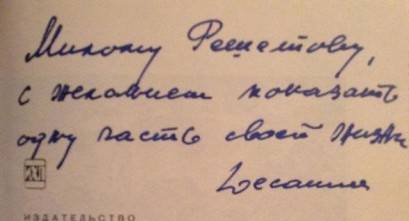 Милому Решетову,
с желанием показать
одну часть своей жизни
ИЗДАТЕЛЬСТВО